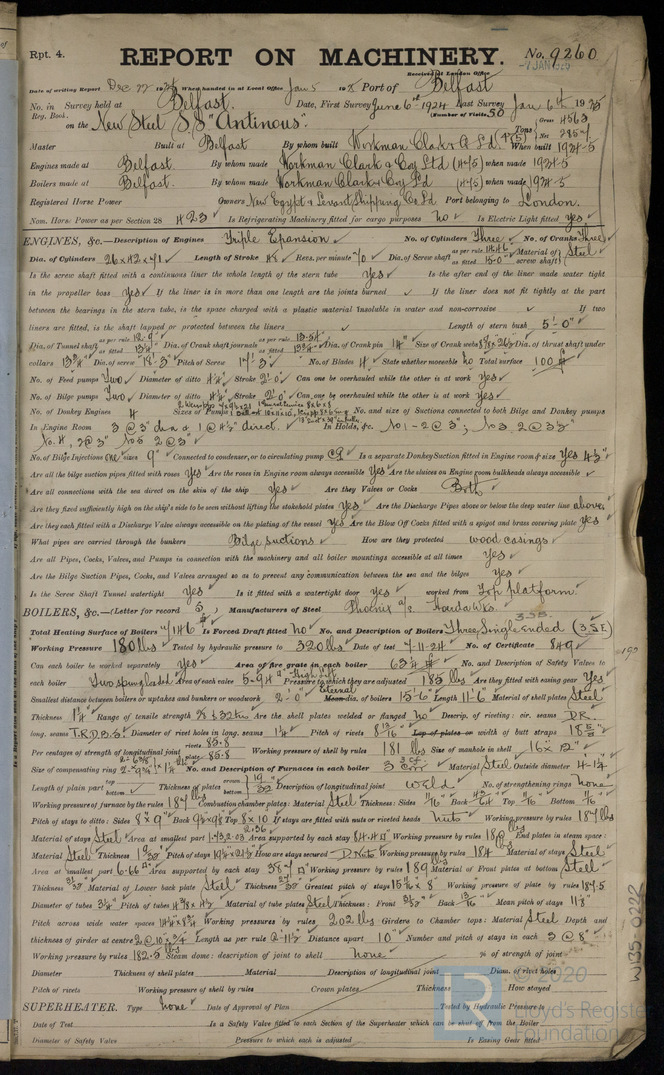 Rpt. 4.
REPORT ON MACHINERY.
No. 9260
Received at London Office
-7 JAN 1925
Date of writing Report Dec 22 19 When handed in at Local Office Jan 5 19 Port of Belfast
No. in Survey held at Belfast. Date, First Survey June 6th 1924 Last Survey Jan 6th 1925
Reg. Book. (Number of Visits 50
on the New Steel S.S. "Antinous". Tons Gross 4563 Net 2857
Master Built at Belfast By whom built Workman Clark & Co Ld (475) When built 1924-5
Engines made at Belfast. By whom made Workman Clark & Coy Ltd (475) when made 1924-5
Boilers made at Belfast. By whom made Workman Clark & Coy Ld (475) when made 1924-5
Registered Horse Power Owners New Egypt & Levant Shipping Co Ld Port belonging to London.
Nom. Horse Power as per Section 28 423 Is Refrigerating Machinery fitted for cargo purposes no Is Electric Light fitted yes
ENGINES, &c.—Description of Engines Triple Expansion No. of Cylinders Three No. of Cranks Three
Dia. of Cylinders 26 x 42 x 71 Length of Stroke 48 Revs. per minute 70 Dia. of Screw shaft as per rule 14.46 as fitted 15.0" Material of screw shaft Steel
Is the screw shaft fitted with a continuous liner the whole length of the stern tube Yes Is the after end of the liner made water tight
in the propeller boss Yes If the liner is in more than one length are the joints burned If the liner does not fit tightly at the part
between the bearings in the stern tube, is the space charged with a plastic material insoluble in water and non-corrosive If two
liners are fitted, is the shaft lapped or protected between the liners Length of stern bush 5'-0"
Dia. of Tunnel shaft as per rule as fitted Dia. of Crank shaft journals as per rule as fitted 13¾" Dia. of Crank pin 14" Size of Crank webs Dia. of thrust shaft under
collars 13¾" Dia. of screw 17'-3" Pitch of Screw 17'-3 No. of Blades 4 State whether moveable no Total surface 100
No. of Feed pumps Two Diameter of ditto 4¼" Stroke 2'-0" Can one be overhauled while the other is at work yes
No. of Bilge pumps Two Diameter of ditto 4¼" Stroke 2'-0" Can one be overhauled while the other is at work yes
No. of Donkey Engines 4 Sizes of Pumps No. and size of Suctions connected to both Bilge and Donkey pumps
In Engine Room 3 @ 3" dia & 1 @ 4½" direct. In Holds, &c. No 1 - 2 @ 3"; No 3. 2 @ 3½"
No. 4, 2 @ 3" No 5 2 @ 3"
No. of Bilge Injections one size 9" Connected to condenser, or to circulating pump C.P. Is a separate Donkey Suction fitted in Engine room & size yes 4½"
Are all the bilge suction pipes fitted with roses yes Are the roses in Engine room always accessible Yes Are the sluices on Engine room bulkheads always accessible
Are all connections with the sea direct on the skin of the ship yes Are they Valves or Cocks Both
Are they fixed sufficiently high on the ship's side to be seen without lifting the stokehold plates yes Are the Discharge Pipes above or below the deep water line above
Are they each fitted with a Discharge Valve always accessible on the plating of the vessel yes Are the Blow Off Cocks fitted with a spigot and brass covering plate yes
What pipes are carried through the bunkers Bilge suctions How are they protected wood casings
Are all Pipes, Cocks, Valves, and Pumps in connection with the machinery and all boiler mountings accessible at all times yes
Are the Bilge Suction Pipes, Cocks, and Valves arranged so as to prevent any communication between the sea and the bilges yes
Is the Screw Shaft Tunnel watertight yes Is it fitted with a watertight door yes worked from Top platform
BOILERS, &c.—(Letter for record S) Manufacturers of Steel Phoenix
Total Heating Surface of Boilers 7146 Is Forced Draft fitted no No. and Description of Boilers Three Single ended (3.S.E)
Working Pressure 180 lbs Tested by hydraulic pressure to 320 lbs Date of test 7-11-24 No. of Certificate 849
Can each boiler be worked separately Yes Area of fire grate in each boiler 63¼ No. and Description of Safety Valves to
each boiler Two spring loaded Area of each valve 5.94 Pressure to which they are adjusted 185 lbs Are they fitted with easing gear Yes
Smallest distance between boilers or uptakes and bunkers or woodwork 2'-0" dia. of boilers 15'-6" Length 11'-6" Material of shell plates Steel
Thickness 1¼" Range of tensile strength 28½ 32 tns Are the shell plates welded or flanged no Descrip. of riveting: cir. seams D.R.
long. seams T.R.D.B.S Diameter of rivet holes in long. seams 1¼ Pitch of rivets 8 13/16 Lap of plates or width of butt straps 18⅝"
Per centages of strength of longitudinal joint rivets 85.8 plate 85.8 Working pressure of shell by rules 181 lbs Size of manhole in shell 16 x 12"
Size of compensating ring No. and Description of Furnaces in each boiler 3 Material Steel Outside diameter 4-1¼
Length of plain part top bottom Thickness of plates crown bottom 19/32 Description of longitudinal joint weld No. of strengthening rings none
Working pressure of furnace by the rules 187 lbs Combustion chamber plates: Material Steel Thickness: Sides 11/16" Back 43/64 Top 11/16 Bottom 11/16
Pitch of stays to ditto: Sides 8 x 9" Back Top 8 x 10 If stays are fitted with nuts or riveted heads nuts Working pressure by rules 187 lbs
Material of stays Steel Area at smallest part Area supported by each stay Working pressure by rules End plates in steam space:
Material Steel Thickness Pitch of stays How are stays secured D. Nuts Working pressure by rules 184 Material of stays Steel
Area at smallest part 6.66 Area supported by each stay 387 Working pressure by rules 189 lbs Material of Front plates at bottom Steel
Thickness Material of Lower back plate Steel Thickness Greatest pitch of stays Working pressure of plate by rules 187.5
Diameter of tubes 3¼" Pitch of tubes Material of tube plates Steel Thickness: Front Back 13/16" Mean pitch of stays 11.8"
Pitch across wide water spaces Working pressures by rules 202 lbs Girders to Chamber tops: Material Steel Depth and
thickness of girder at centre 2 @ 10 x ¾ Length as per rule 2'-11½ Distance apart 10" Number and pitch of stays in each 3 @ 8"
Working pressure by rules 182.5 lbs Steam dome: description of joint to shell none % of strength of joint
Diameter Thickness of shell plates Material Description of longitudinal joint Diam. of rivet holes
Pitch of rivets Working pressure of shell by rules Crown plates Thickness How stayed
SUPERHEATER. Type none Date of Approval of Plan Tested by Hydraulic Pressure to
Date of Test Is a Safety Valve fitted to each Section of the Superheater which can be shut off from the Boiler
Diameter of Safety Valve Pressure to which each is adjusted Is Easing Gear fitted
W135-0222
© 2020
Lloyd's Register
Foundation